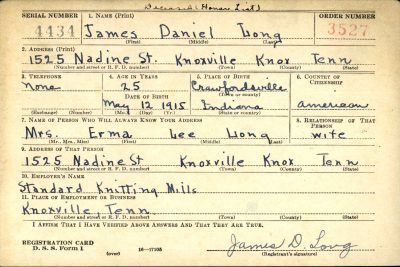 Deceased (Honor List)
SERIAL NUMBER 1. NAME (Print) ORDER NUMBER
4434 James Daniel Long 3527
(First) (Middle) (Last)
2. ADDRESS (Print)
1525 Nadine St. Knoxville Knox Tenn
(Number and street or R. F. D. number) (Town) (County) (State)
3. TELEPHONE 4. AGE IN YEARS 5. PLACE OF BIRTH 6. COUNTRY OF CITIZENSHIP
None 25 Crawfordsville
(Town or county)
DATE OF BIRTH
May 12 1915 Indiana American
(Exchange) (Number) (Mo.) (Day) (Yr.) (State or country)
7. NAME OF PERSON WHO WILL ALWAYS KNOW YOUR ADDRESS 8. RELATIONSHIP OF THAT PERSON
Mrs. Erma Lee Long wife
(Mr., Mrs., Miss) (First) (Middle) (Last)
9. ADDRESS OF THAT PERSON
1525 Nadine St Knoxville Knox Tenn
(Number and street or R. F. D. number) (Town) (County) (State)
10. EMPLOYER'S NAME
Standard Knitting Mills
11. PLACE OF EMPLOYMENT OR BUSINESS
Knoxville, Tenn.
(Number and street or R. F. D. number) (Town) (County) (State)
I AFFIRM THAT I HAVE VERIFIED ABOVE ANSWERS AND THAT THEY ARE TRUE.
REGISTRATION CARD
D. S. S. Form 1 16-17105 James D. Long
(over) (Registrant's signature)